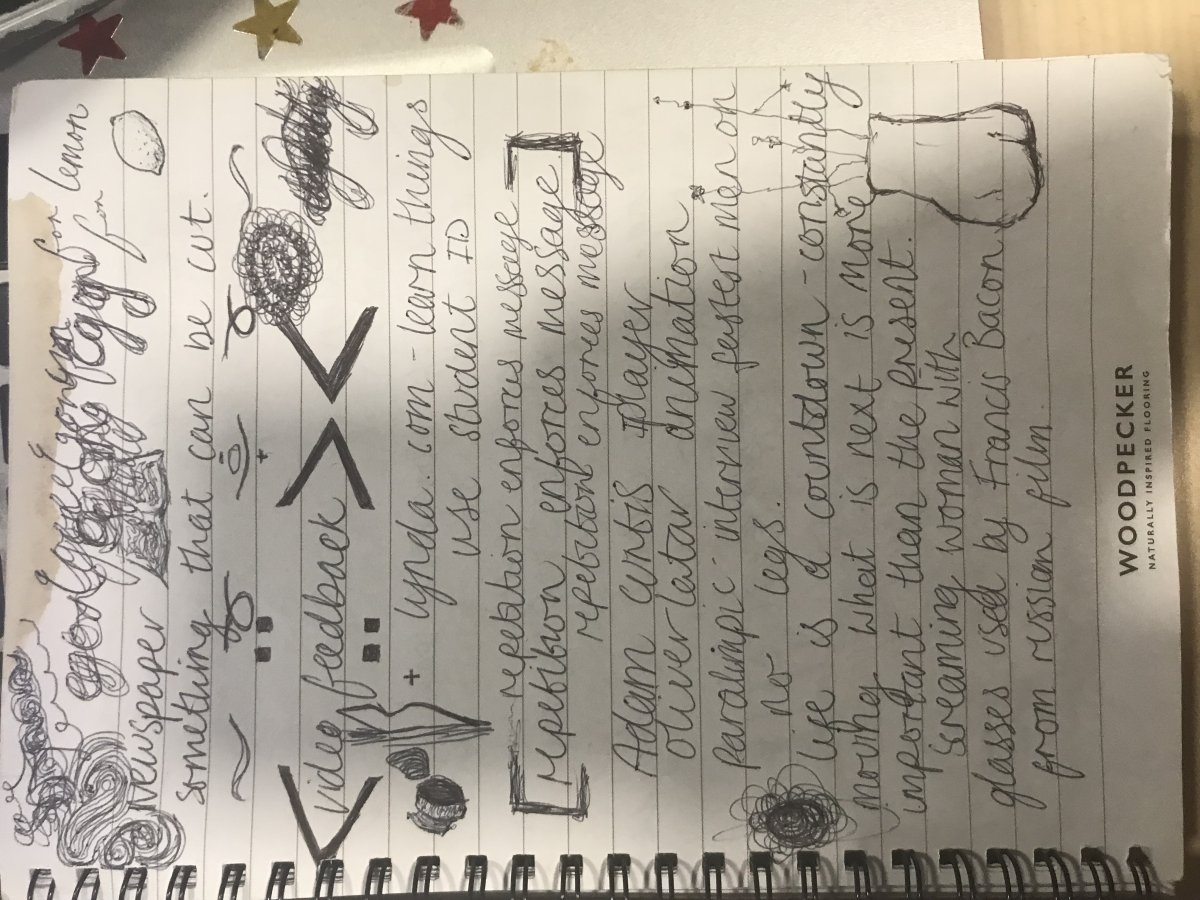 for lemon
for
Newspaper
something that can be cut.
video feedback
+ lynda.com - learn things
use student ID
repetition enforces message
repetition enforces message
repetition enforces message
Adam Curtis iplayer
oliver latar animation
paralimpic - interview fastest men on
no legs.
life is a countdown - constantly
moving what is next is more
important than the present.
Screaming woman with
glasses used by Francis Bacon
from russian film.
WOODPECKER
NATURALLY INSPIRED FLOORING